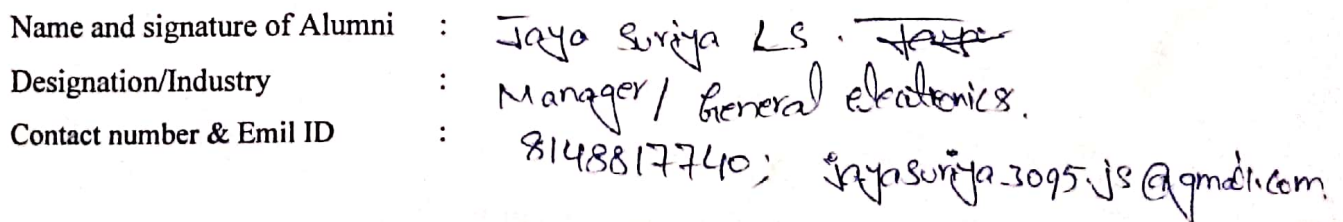 Name and signature of Alumni : Jaya Suriya LS. Jaya
Designation/Industry : Manager / General electronics.
Contact number & Emil ID : 8148817740; jayasuriya.3095.js@gmail.com